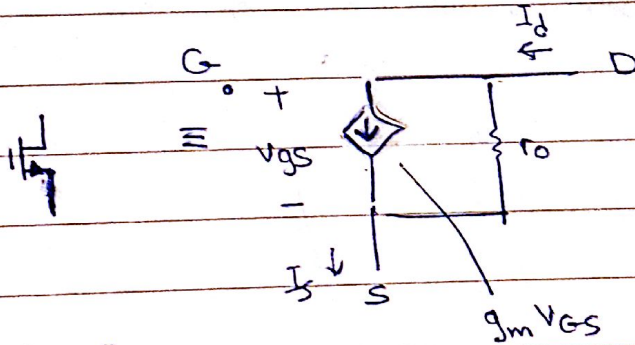 Id
←
G
D
+
≡
vgs
ro
−
Is ↓
S
gm VGS